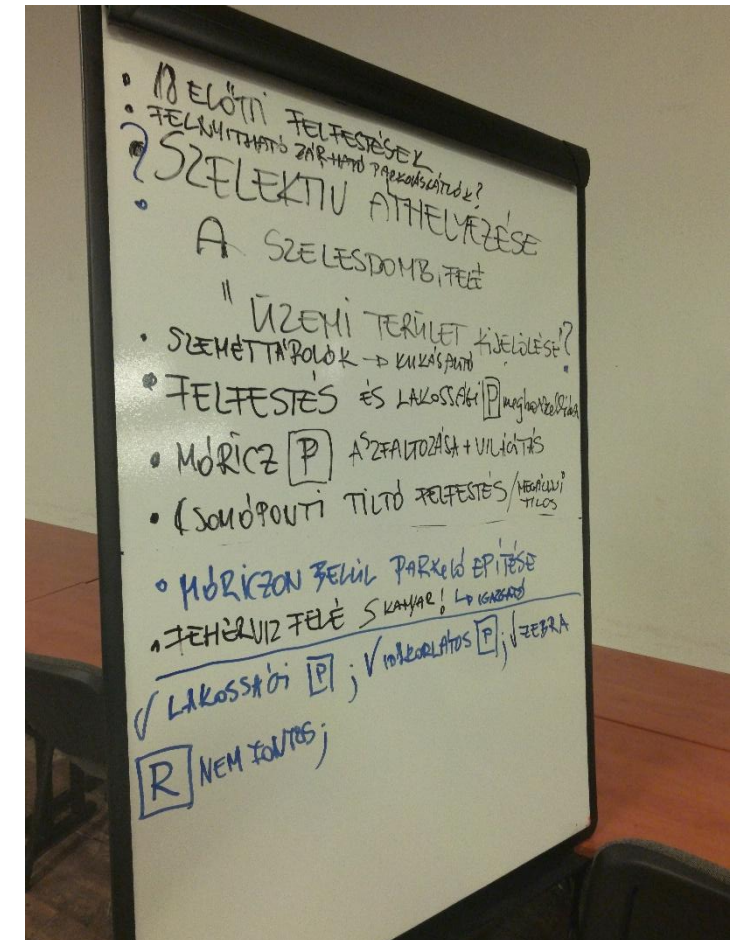 • 18 ELŐTTI FELFESTÉSEK
• FELNYITHATÓ ZÁRHATÓ PARKOLÁSGÁTLÓK?
? • SZELEKTIV ÁTHELYEZÉSE
A SZELESDOMB, FELÉ
" ÜZEMI TERÜLET KIJELÖLÉSE?
• SZEMÉTTÁROLÓK → KUKÁSAUTÓ
• FELFESTÉS ÉS LAKOSSÁGI P
• MÓRICZ P ASZFALTOZÁSA + VILÁGÍTÁS
• CSOMÓPONTI TILTÓ FELFESTÉS / MEGÁLLNI TILOS
• MÓRICZON BELÜL PARKOLÓ ÉPÍTÉSE
• FEHÉRVIZ FELÉ S KANYAR! ↳ IGAZGATÓ
✓ LAKOSSÁGI P ; ✓ IDŐKORLÁTOS P ; ✓ ZEBRA
R NEM FONTOS;